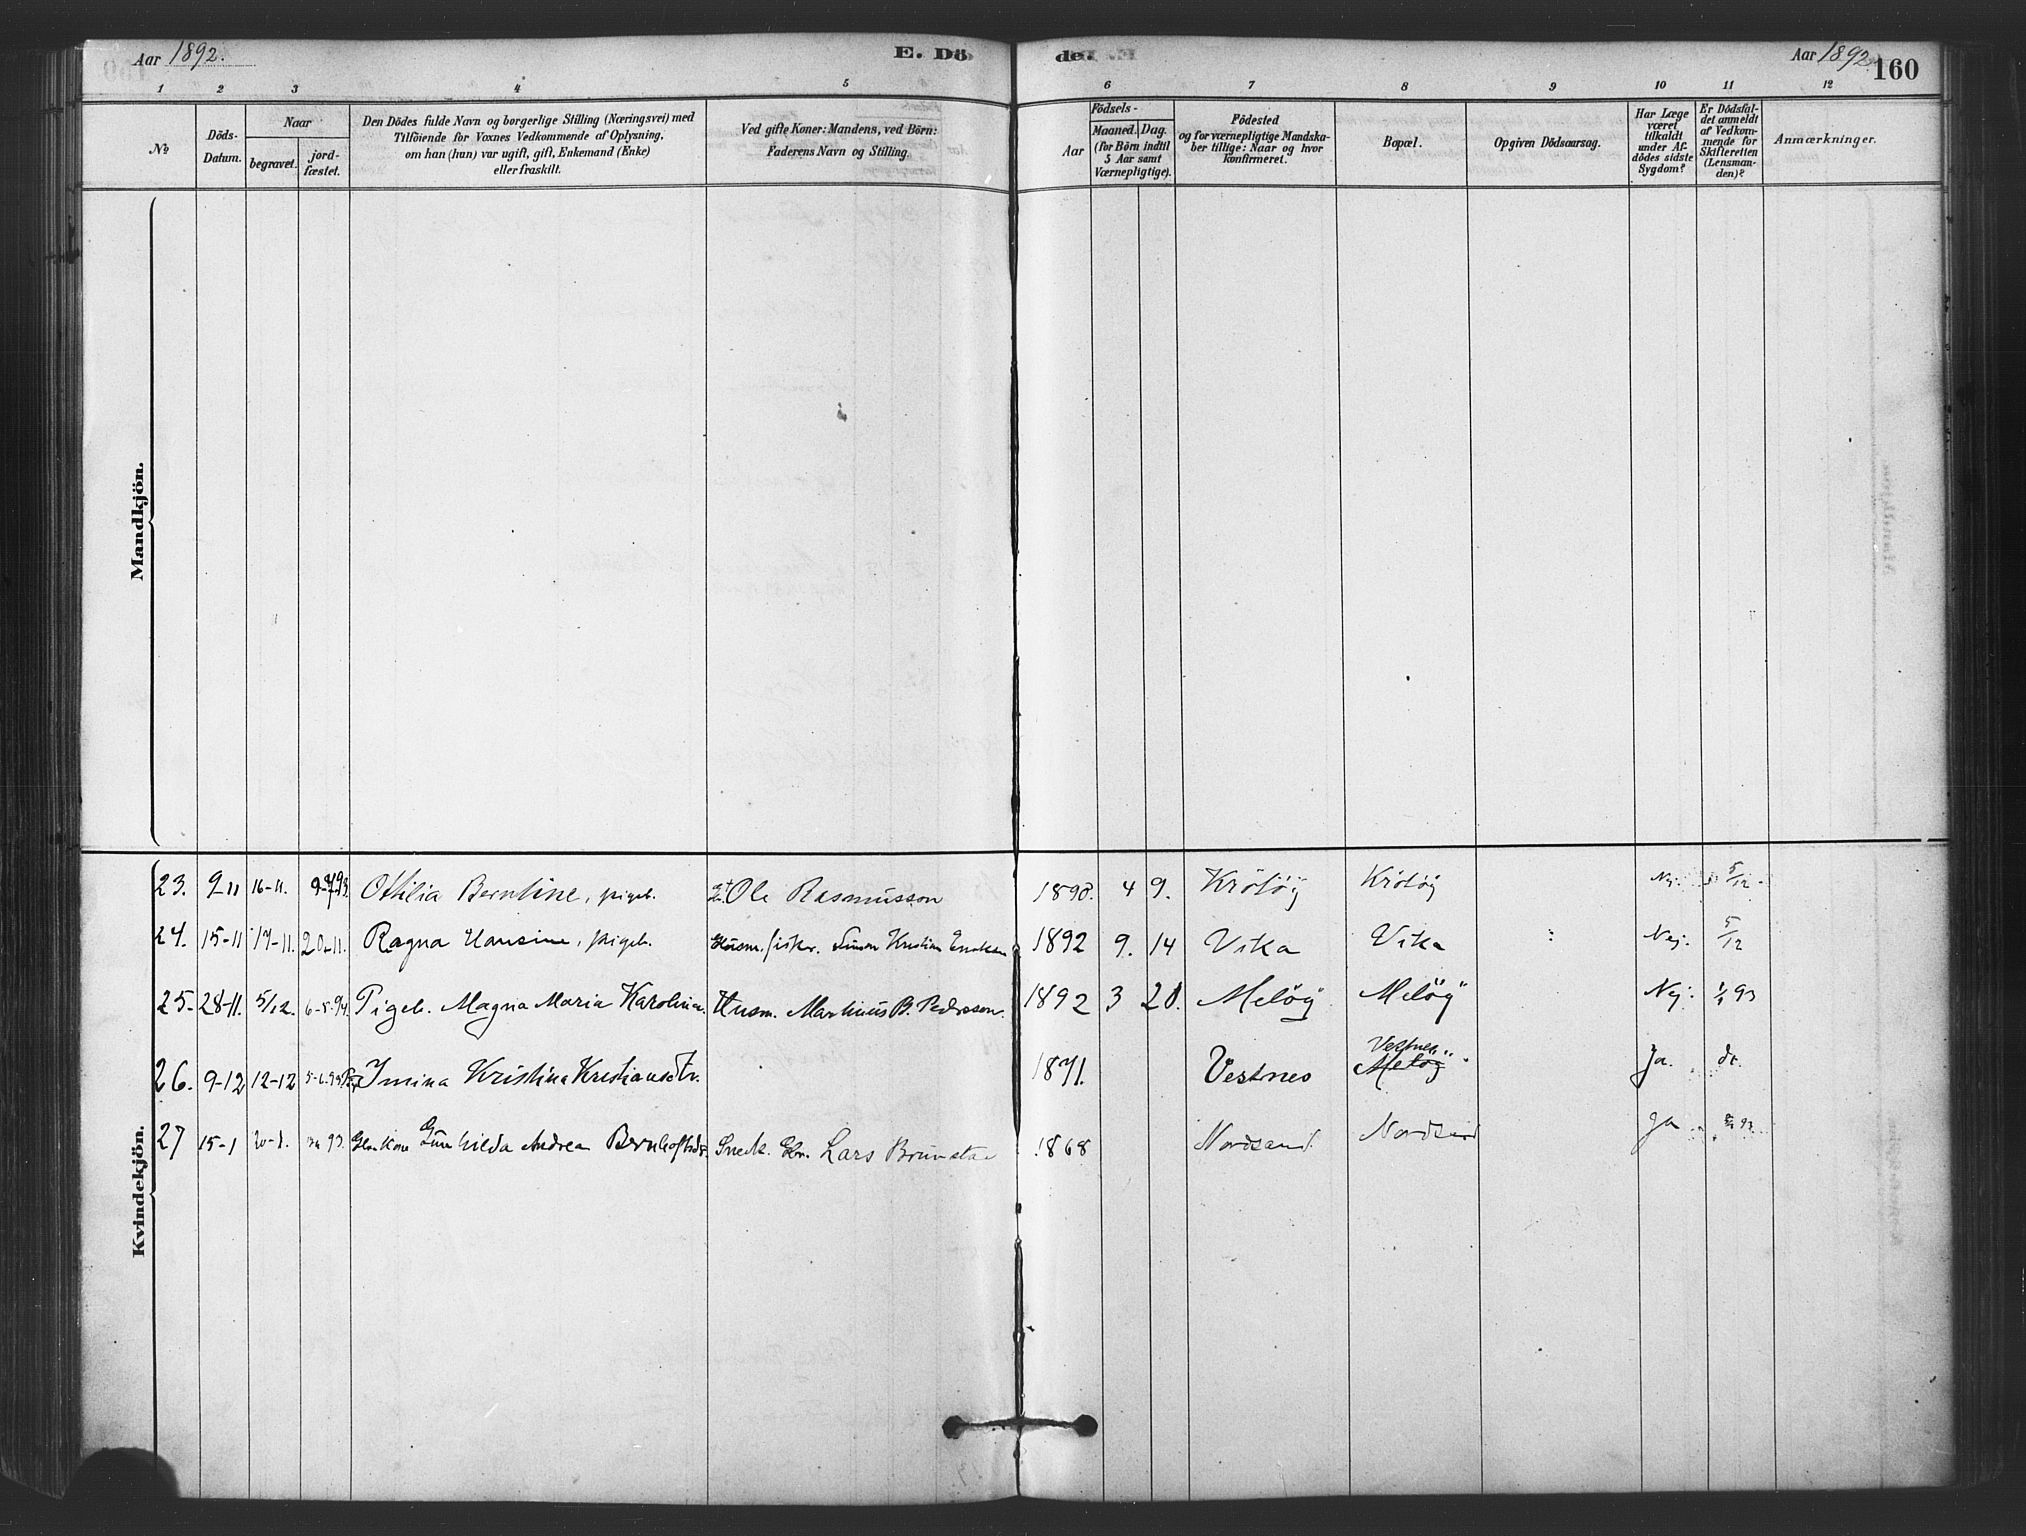 Aar 1892. E. Döde. Aar 1892 160
1 2 3 4 5 6 7 8 9 10 11 12
No
Döds-Datum.
Naar
begravet.
jord-fæstet.
Den Dödes fulde Navn og borgerlige Stilling (Næringsvei) med
Tilföiende for Voxnes Vedkommende af Oplysning,
om han (hun) var ugift, gift, Enkemand (Enke)
eller fraskilt.
Ved gifte Koner: Mandens, ved Börn:
Faderens Navn og Stilling.
Födsels-
Aar
Maaned. Dag.
(for Börn indtil
5 Aar samt
Værnepligtige).
Födested
og for værnepligtige Mandska-
ber tillige: Naar og hvor
Konfirmeret.
Bopæl.
Opgiven Dödsaarsag.
Har Læge
været
tilkaldt
under Af-
dödes sidste
Sygdom?
Er Dödsfal-
det anmeldt
af Vedkom-
mende for
Skifteretten
(Lensman-
den)?
Anmærkninger.
Mandkjön.
Kvindekjön.
23. 9-11 16-11. Ottilia Berntine, pigeb. Ole Rasmusson 1890. 4 9. Krötöy Krötöy Nej. 5/12.
24. 15-11 17-11. 20-11. Ragna Hansine, pigeb. Husm. fisker. Simon Kristian 1892 9. 14 Vika Vika Nej. 5/12
25. 28-11. 5/12. 6-5-94. Pigeb. Magna Maria Karolina. Husm. Martinius B. Pedersson. 1892 3 20. Melöy Melöy Nej. 93
26. 9-12 12-12 Imina Kristina Kristiansdtr. 1871. Vestnes Vestnes Melöy Ja. do.
27 15-1 93. Kone Gunhilda Andrea Lars 1868 Nordsand. Nordsand Ja 93